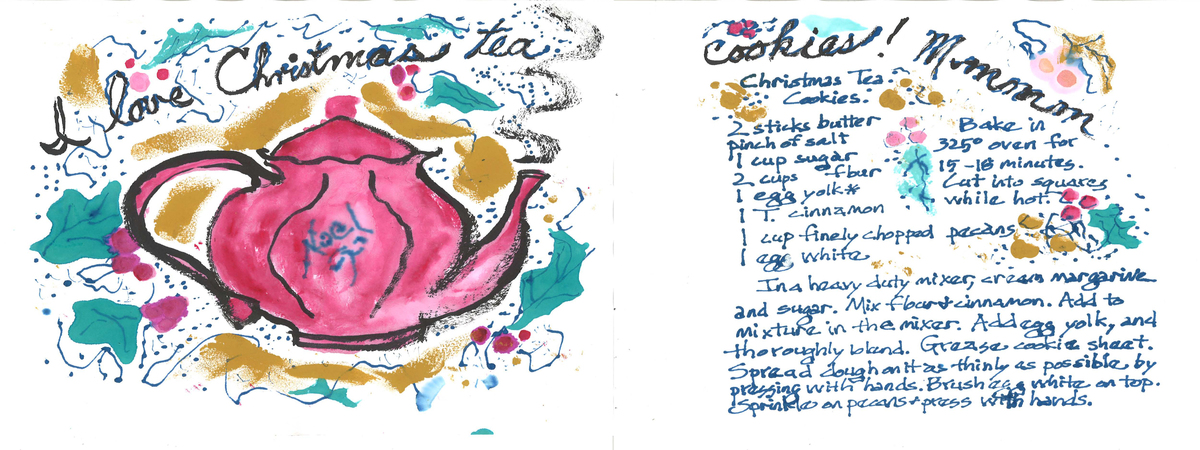 I love Christmas tea
Noel
Cookies! Mmmmm
Christmas Tea
Cookies.
2 sticks butter
pinch of salt
1 cup sugar
2 cups flour
1 egg yolk*
1 T. cinnamon
1 cup finely chopped pecans
1 egg white
Bake in
325° oven for
15-18 minutes.
Cut into squares
while hot.
In a heavy duty mixer, cream margarine
and sugar. Mix flour + cinnamon. Add to
mixture in the mixer. Add egg yolk, and
thoroughly blend. Grease cookie sheet.
Spread dough on it as thinly as possible by
pressing with hands. Brush egg white on top.
Sprinkle on pecans + press with hands.